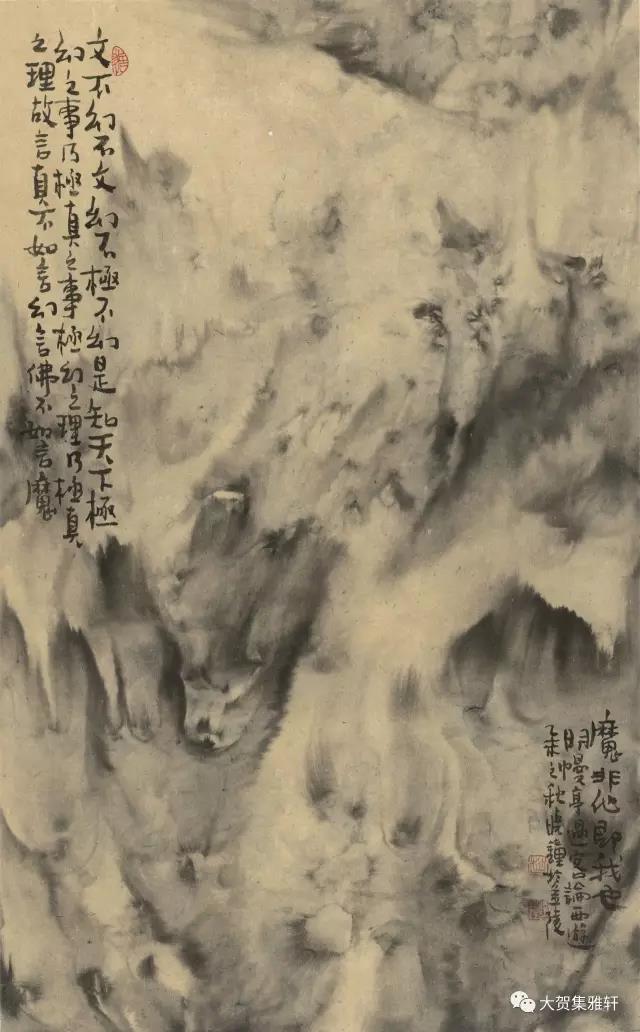 文不幻不文幻不極不幻是知天下極
幻之事乃極真之事極幻之理乃極真
之理故言真不如言幻言佛不如言魔
魔非他即我也
明幔亭過客論西遊
之秋曉鐘於金陵
大贺集雅轩